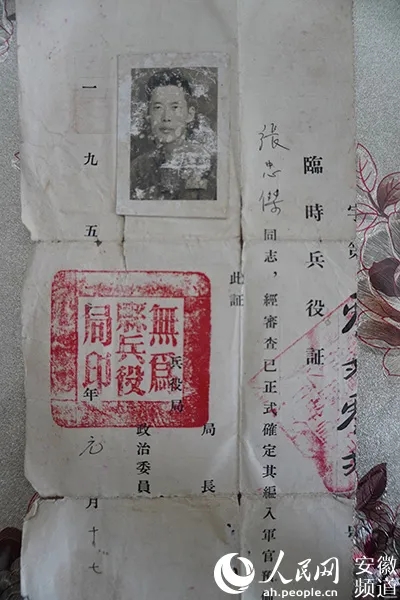 臨時兵役証
張忠傑同志，經審查已正式確定其編入軍官預
此証
兵役局
局長
政治委員
一九五
年元月十七
無為縣兵役局印
人民网
安徽频道
ah.people.cn